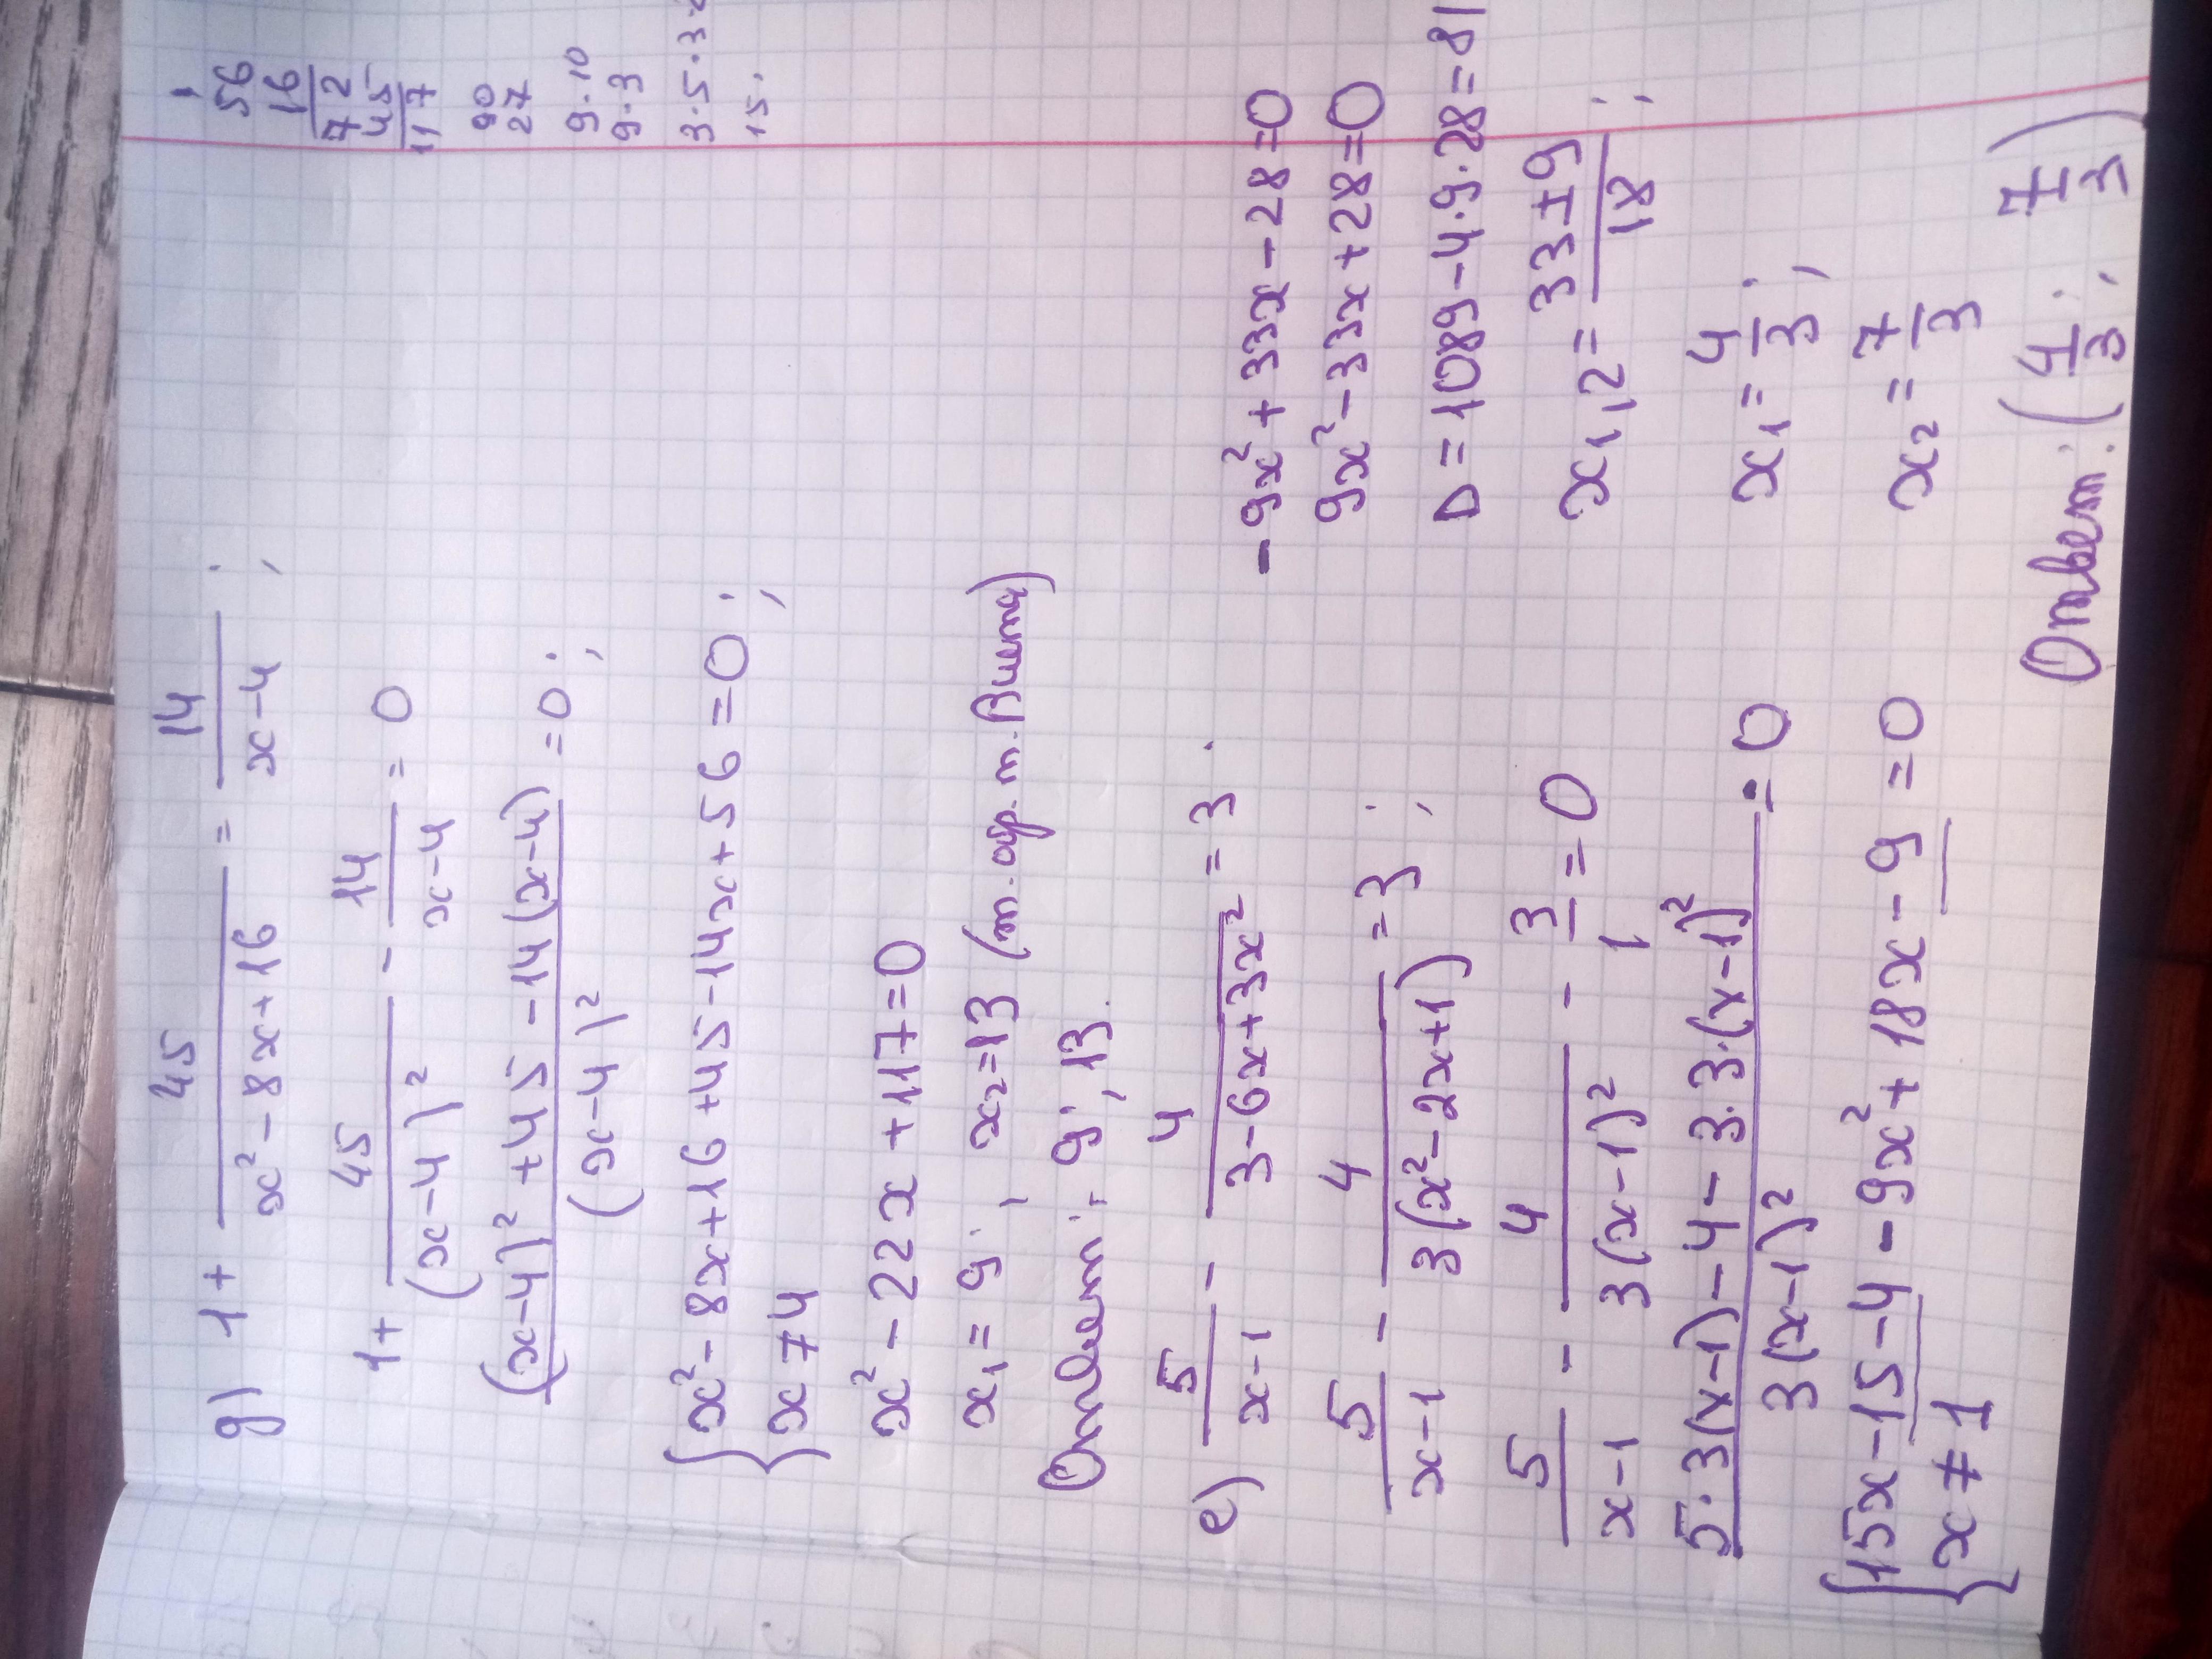 д) 1 + 45/(x² - 8x + 16) = 14/(x - 4) ;
1 + 45/(x - 4)² - 14/(x - 4) = 0
((x-4)² + 45 - 14(x-4))/(x-4)² = 0 ;
{ x² - 8x + 16 + 45 - 14x + 56 = 0 ;
x ≠ 4
x² - 22x + 117 = 0
x₁ = 9 ; x₂ = 13 (т. обр. т. Виета)
Ответ: 9; 13.
е) 5/(x-1) - 4/(3 - 6x + 3x²) = 3 .
5/(x-1) - 4/(3(x² - 2x + 1)) = 3 ;
5/(x-1) - 4/(3(x-1)²) - 3/1 = 0
(5·3(x-1) - 4 - 3·3·(x-1)²)/(3(x-1)²) = 0
{ 15x - 15 - 4 - 9x² + 18x - 9 = 0
x ≠ 1
- 9x² + 33x - 28 = 0
9x² - 33x + 28 = 0
D = 1089 - 4·9·28 = 81
x₁,₂ = (33 ± 9)/18 ;
x₁ = 4/3 ;
x₂ = 7/3
Ответ: (4/3 ; 7/3)
1
56
16
72
45
117
90
27
9·10
9·3
3·5·3
15.